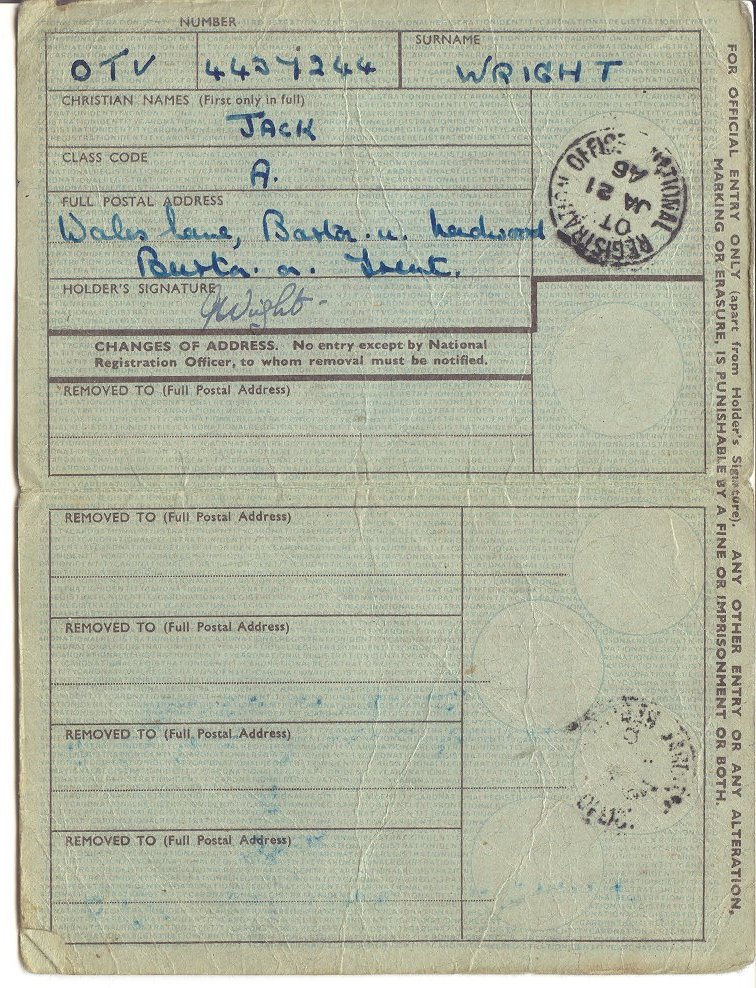 NUMBER
OTV 4437244
SURNAME
WRIGHT
CHRISTIAN NAMES (First only in full)
JACK
CLASS CODE
A.
FULL POSTAL ADDRESS
Wales Lane, Barton. u. Needwood
Burton. on. Trent.
HOLDER'S SIGNATURE
J Wright
NATIONAL REGISTRATION OFFICE
OT
JA 21
46
CHANGES OF ADDRESS. No entry except by National
Registration Officer, to whom removal must be notified.
REMOVED TO (Full Postal Address)
REMOVED TO (Full Postal Address)
REMOVED TO (Full Postal Address)
REMOVED TO (Full Postal Address)
REMOVED TO (Full Postal Address)
FOR OFFICIAL ENTRY ONLY (apart from Holder's Signature). ANY OTHER ENTRY OR ANY ALTERATION,
MARKING OR ERASURE, IS PUNISHABLE BY A FINE OR IMPRISONMENT OR BOTH.